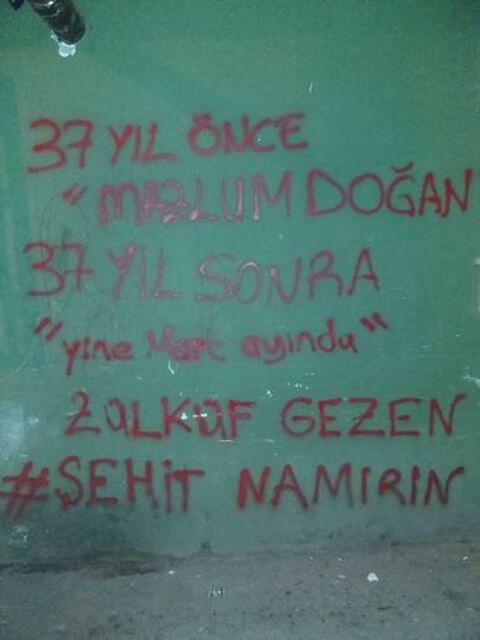 37 YIL ÖNCE
"MAZLUM DOĞAN
37 YIL SONRA
"yine Mart ayında"
ZÜLKÜF GEZEN
#ŞEHİT NAMIRIN